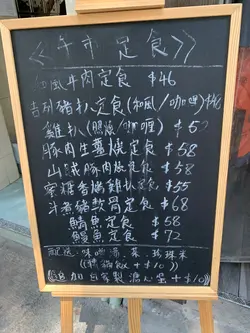 <<午市定食>>
和風牛肉定食 $46
吉列豬扒定食(和風/咖喱) $46
雞扒(照燒/咖喱) $5
豚肉生薑燒定食 $58
山 豚肉燒定食 $58
蜜糖香燒雞扒定食 $55
斗煮豬軟骨定食 $68
鯖魚定食 $58
鰻魚定食 $72
配送:味噌湯、菜、珍珠米
((轉 飯 +$10))
加自家製漬心堡+$10))